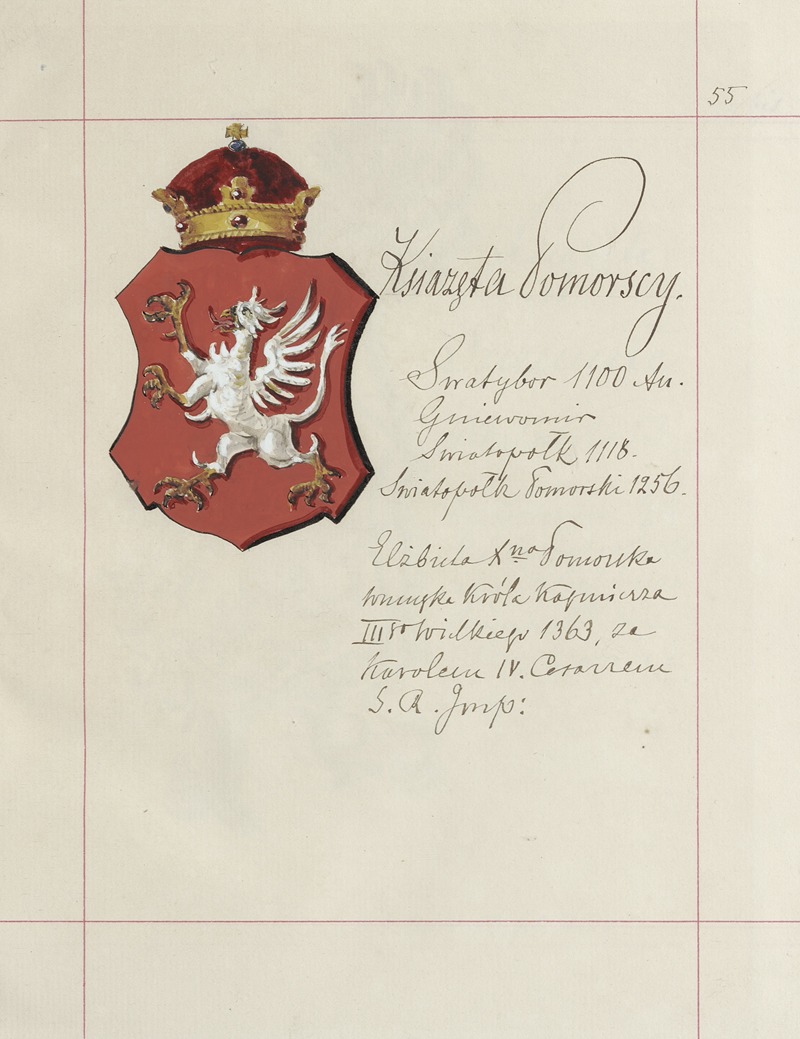 55
Książęta Pomorscy.
Swatybor 1100 An.
Gniewomir
Swiatopołk 1118.
Swiatopołk Pomorski 1256.
Elżbieta Xna Pomorska
wnuczka Króla Kazmierza
IIIgo Wielkiego 1363, za
Karolem IV. Cesarzem
S. R. Jmp: